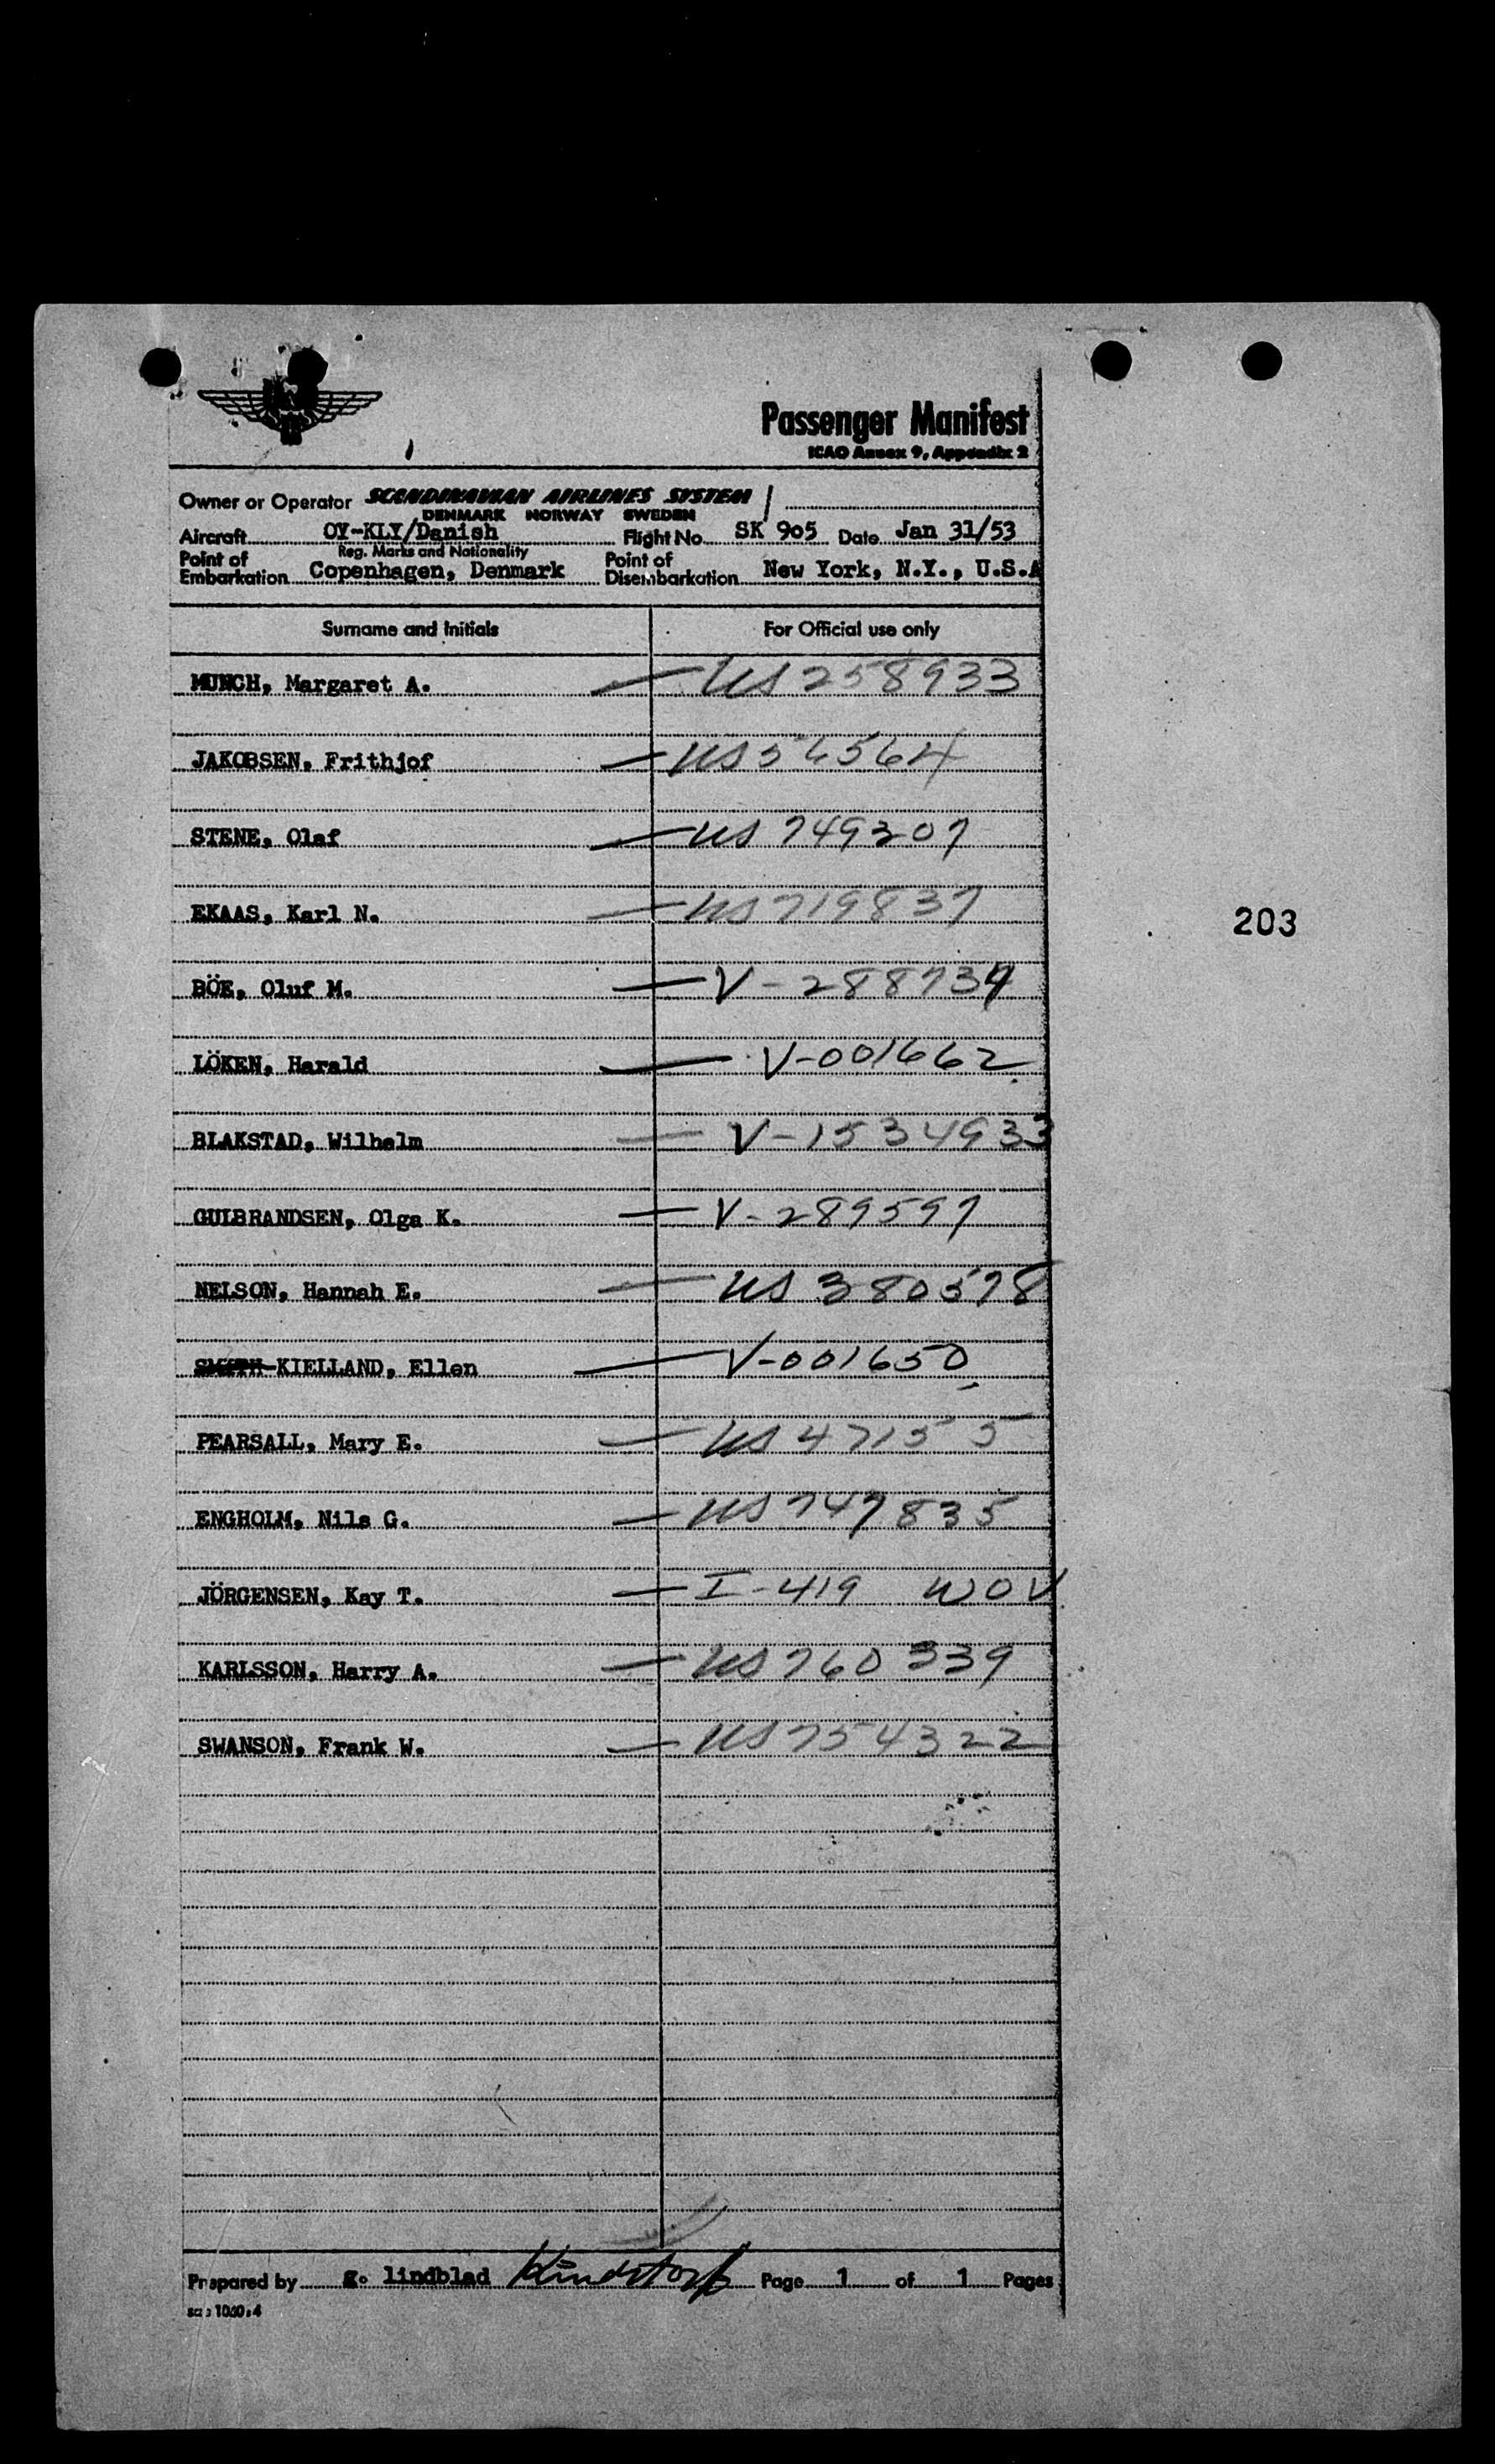 Passenger Manifest
ICAO Annex 9, Appendix 2
Owner or Operator SCANDINAVIAN AIRLINES SYSTEM
DENMARK NORWAY SWEDEN
Aircraft OY-KLY/Danish Flight No. SK 905 Date Jan 31/53
Reg. Marks and Nationality
Point of Embarkation Copenhagen, Denmark Point of Disembarkation New York, N.Y., U.S.A
Surname and Initials For Official use only
MUNCH, Margaret A. US 258933
JAKOBSEN, Frithjof US 56564
STENE, Olaf US 749207
EKAAS, Karl N. US 719837
203
BÖE, Oluf M. V-288734
LÖKEN, Harald V-001662
BLAKSTAD, Wilhelm V-1534933
GULBRANDSEN, Olga K. V-289597
NELSON, Hannah E. US 380578
KIELLAND, Ellen V-001650
PEARSALL, Mary E. US 47155
ENGHOLM, Nils G. US 747835
JÖRGENSEN, Kay T. I-419 WOV
KARLSSON, Harry A. US 760339
SWANSON, Frank W. US 754322
Prepared by g. lindblad Page 1 of 1 Pages